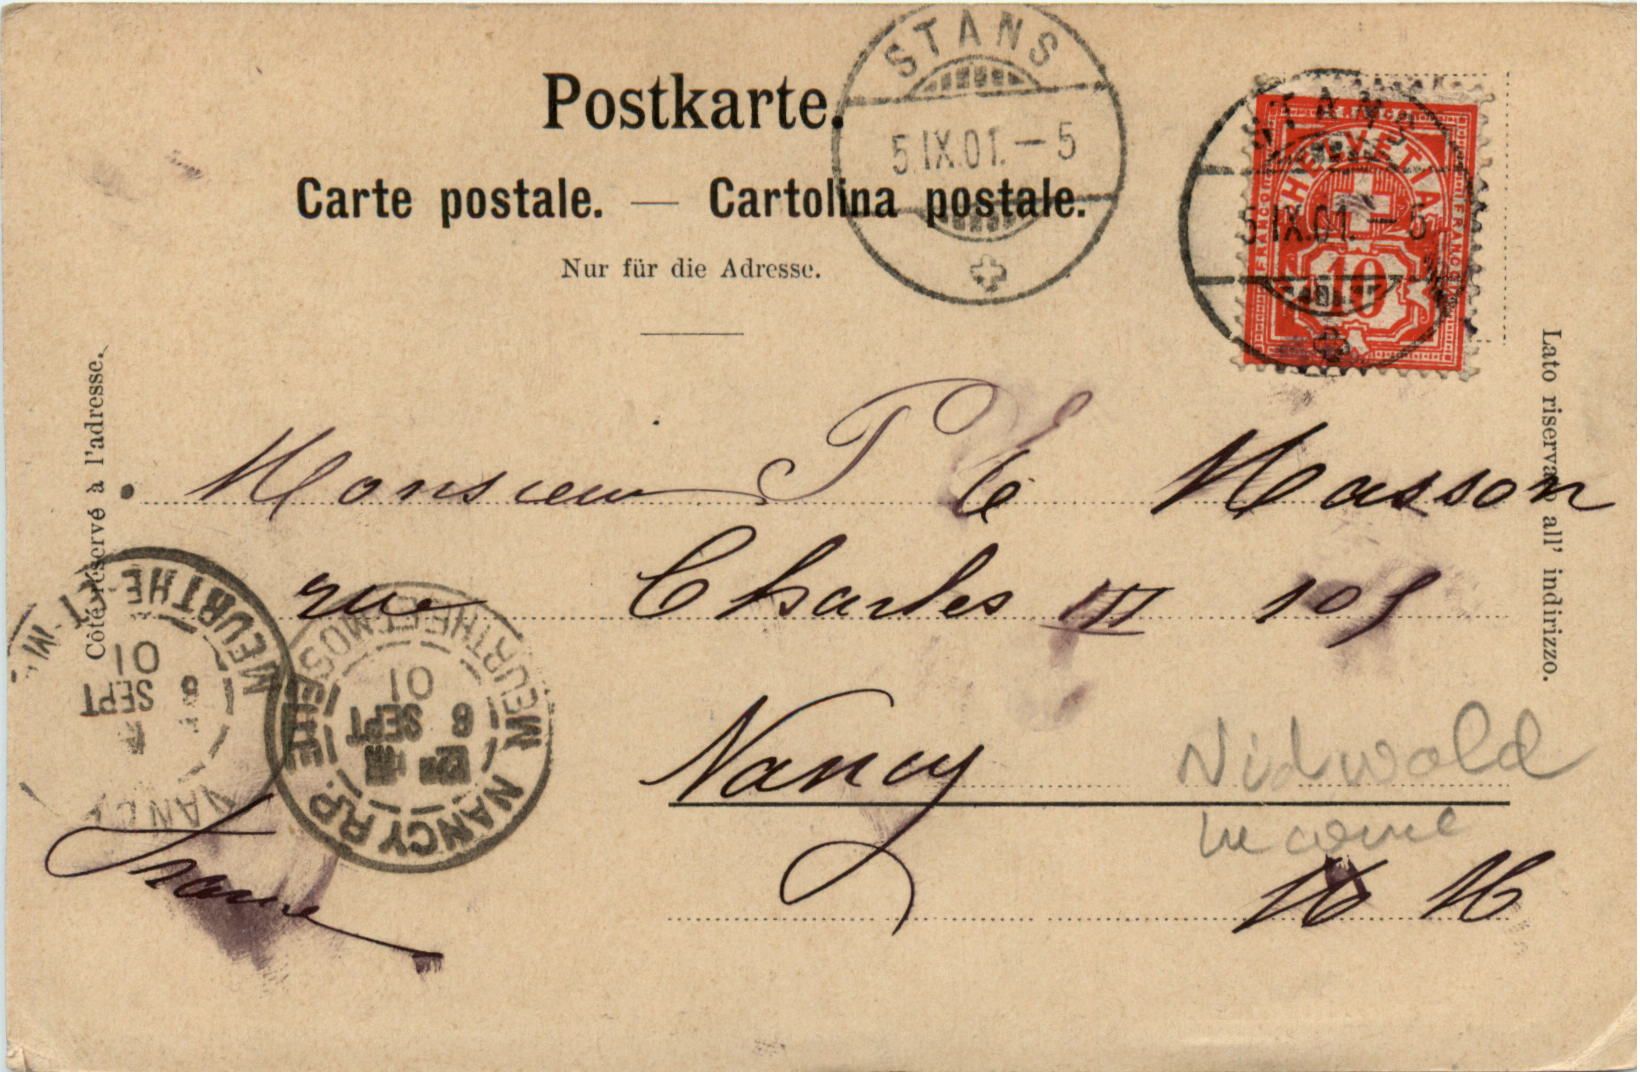 Postkarte.
Carte postale. — Cartolina postale.
Nur für die Adresse.
STANS
5.IX.01.-5
STANS
5.IX.01.-5
HELVETIA
FRANCO
FRANCO
10
Côté réservé à l'adresse.
Lato riservato all' indirizzo.
Monsieur Masson
rue Charles III 105
Nancy
France
NANCY R.P.
MEURTHE ET MOSELLE
6 SEPT
01
NANCY
MEURTHE ET M
6 SEPT
01
Nidwald